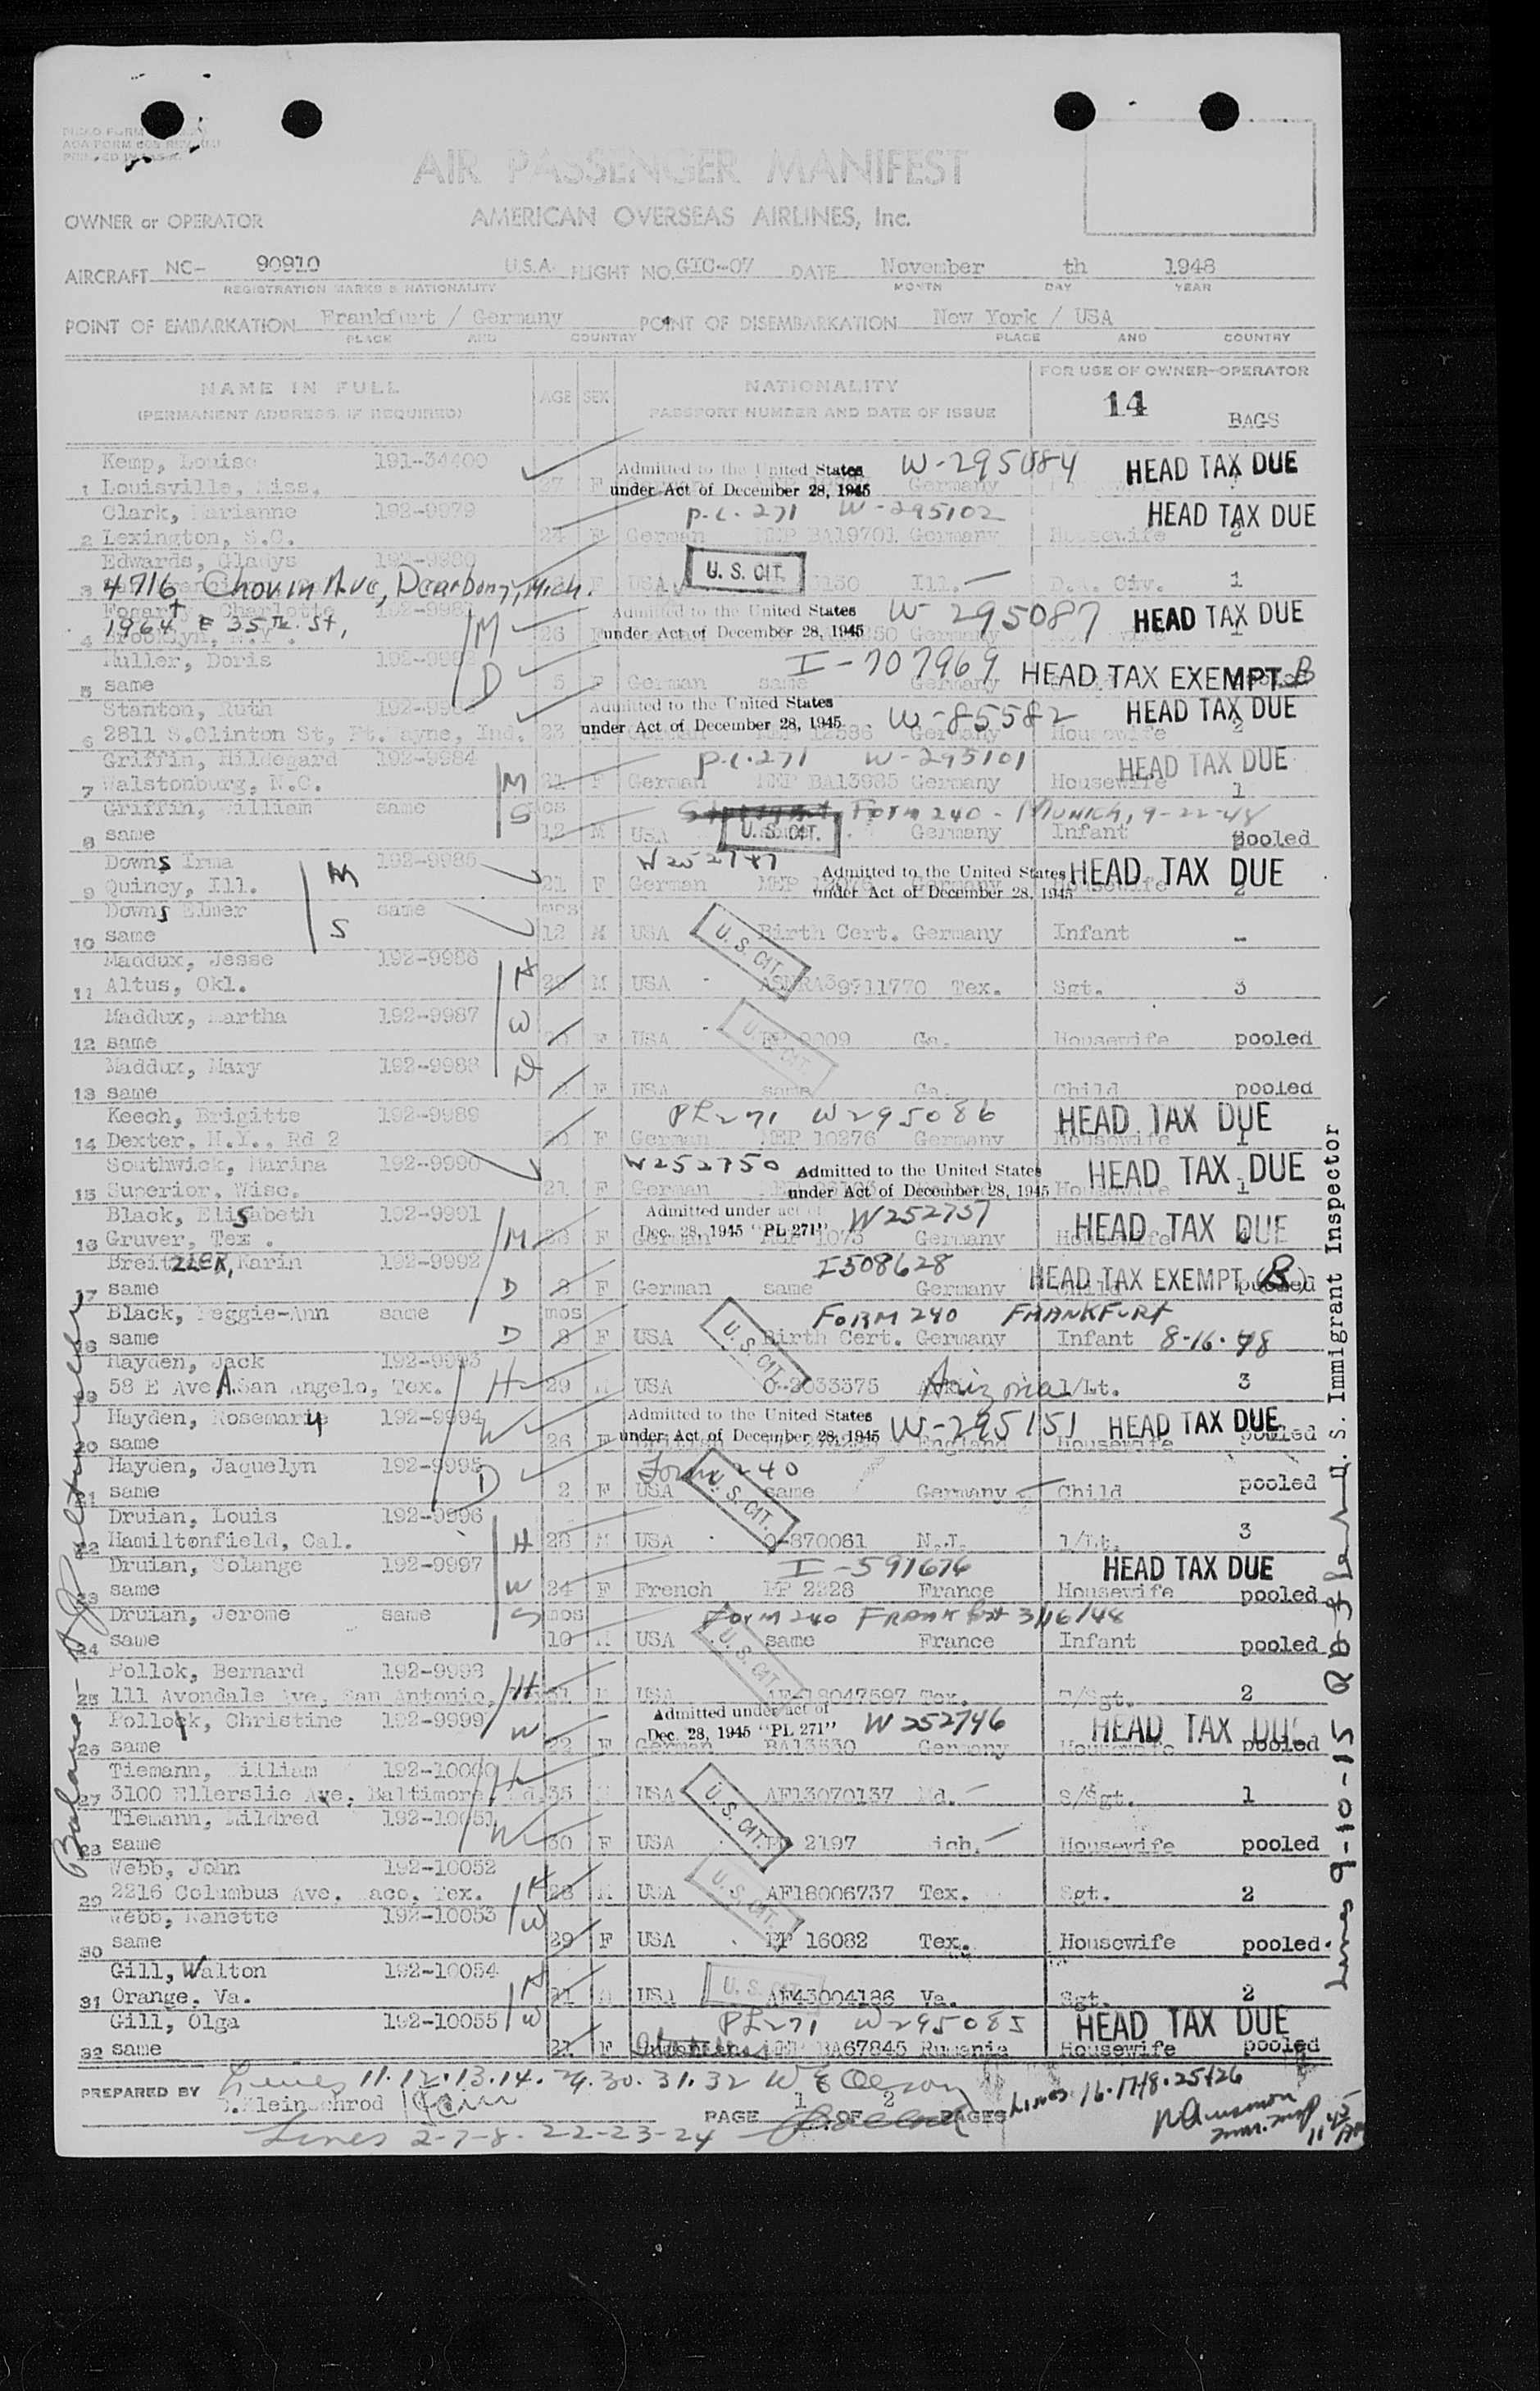 AIR PASSENGER MANIFEST
OWNER or OPERATOR AMERICAN OVERSEAS AIRLINES, Inc.
AIRCRAFT NC- 90910 U.S.A. FLIGHT NO. GIC-07 DATE November th 1948
REGISTRATION MARKS & NATIONALITY MONTH DAY YEAR
POINT OF EMBARKATION Frankfurt / Germany POINT OF DISEMBARKATION New York / USA
PLACE AND COUNTRY PLACE AND COUNTRY
NAME IN FULL AGE SEX NATIONALITY FOR USE OF OWNER-OPERATOR
(PERMANENT ADDRESS, IF REQUIRED) PASSPORT NUMBER AND DATE OF ISSUE 14 BAGS
Kemp, Louise 191-34400 Admitted to the United States W-295084 HEAD TAX DUE
1 Louisville, Miss. 27 F under Act of December 28, 1945 Germany
Clark, Marianne 192-9979 P.L. 271 W-295102 HEAD TAX DUE
2 Lexington, S.C. 24 F German MEP BA19701 Germany Housewife 2
Edwards, Gladys 192-9980 U. S. CIT.
3 4716 Chovin Ave, Dearborn, Mich. F USA 1130 Ill. D.A. Civ. 1
Fogarty, Charlotte Admitted to the United States W-295087 HEAD TAX DUE
1964 E 35th St,
4 Brooklyn, N.Y. 26 under Act of December 28, 1945 Germany 1
Muller, Doris I-707969 HEAD TAX EXEMPT B
5 same 5 F German same Germany
Stanton, Ruth Admitted to the United States W-85582 HEAD TAX DUE
6 2811 S.Clinton St, Ft. Wayne, Ind. 23 under Act of December 28, 1945 12586 Germany Housewife 2
Griffin, Hildegard 192-9984 M P.L. 271 W-295101 HEAD TAX DUE
7 Walstonburg, N.C. 21 F German MEP BA13985 Germany Housewife 1
Griffin, William same S mos Form 240 - Munich, 9-22-48
8 same 12 M USA U. S. CIT. Germany Infant pooled
Downs Irma 192-9985 M W252747 Admitted to the United States HEAD TAX DUE
9 Quincy, Ill. 21 F German MEP under Act of December 28, 1945 2
Downs Elmer same S mos
10 same 12 M USA U. S. CIT. Birth Cert. Germany Infant -
Maddux, Jesse 192-9986 H
11 Altus, Okl. M USA 39711770 Tex. Sgt. 3
Maddux, Martha 192-9987 W
12 same F USA U. S. CIT. Ga. Housewife pooled
Maddux, Mary 192-9988 D
13 same F USA same Ga. Child pooled
Keech, Brigitte 192-9989 PL271 W295086 HEAD TAX DUE
14 Dexter, N.Y., Rd 2 F German MEP 10276 Germany Housewife 1
Southwick, Marina 192-9990 W252750 Admitted to the United States HEAD TAX DUE
15 Superior, Wisc. 21 F German under Act of December 28, 1945 Housewife 1
Black, Elisabeth 192-9991 M Admitted under act of W252757 HEAD TAX DUE
16 Gruver, Tex. F German Dec. 28, 1945 "PL 271" 1073 Germany Housewife
Breitzler, Karin 192-9992 I508628 HEAD TAX EXEMPT (B)
17 same D 8 F German same Germany Child pooled
Black, Peggie-Ann same mos FORM 240 FRANKFURT
18 same D 8 F USA U. S. CIT. Birth Cert. Germany Infant 8-16-48
Hayden, Jack 192-9993
19 58 E Ave A San Angelo, Tex. H 29 M USA O-2033575 Arizona 1/Lt. 3
Hayden, Rosemary 192-9994 W Admitted to the United States W-295151 HEAD TAX DUE
20 same 26 F under Act of December 28, 1945 England Housewife pooled
Hayden, Jaquelyn 192-9995 D Form 240
21 same 2 F USA U. S. CIT. same Germany Child pooled
Druian, Louis 192-9996
22 Hamiltonfield, Cal. H 28 M USA O-870061 N.J. 1/Lt. 3
Druian, Solange 192-9997 I-591676 HEAD TAX DUE
23 same W 24 F French PP 2228 France Housewife pooled
Druian, Jerome same S mos Form 240 Frankfurt 3/16/48
24 same 10 M USA U. S. CIT. same France Infant pooled
Pollok, Bernard 192-9998
25 111 Avondale Ave, San Antonio, H 31 M USA AF-18047597 Tex. S/Sgt. 2
Pollock, Christine 192-9999 W Admitted under act of W252746 HEAD TAX DUE
26 same 22 F German Dec. 28, 1945 "PL 271" BA13530 Germany Housewife pooled
Tiemann, William H
27 3100 Ellerslie Ave, Baltimore, Md. 35 M USA U. S. CIT. AF13070137 Md. S/Sgt. 1
Tiemann, Mildred 192-10051 W
28 same 30 F USA 2197 Mich. Housewife pooled
Webb, John 192-10052
29 2216 Columbus Ave, Waco, Tex. H 28 M USA U. S. CIT. AF18006737 Tex. Sgt. 2
Webb, Nanette 192-10053 W
30 same 29 F USA PP 16082 Tex. Housewife pooled
Gill, Walton 192-10054 H
31 Orange, Va. 21 M USA U. S. CIT. AF43004186 Va. Sgt. 2
Gill, Olga 192-10055 W PL271 W295085 HEAD TAX DUE
32 same 21 F MEP BA67845 Rumania Housewife pooled
Lines 11.12.13.14.29.30.31.32 W E Olson
PREPARED BY PAGE 1 OF 2 PAGES
Lines 16.17.18.25.26
Lines 2-7-8-22-23-24
Balance
Lines 9-10-15
U. S. Immigrant Inspector